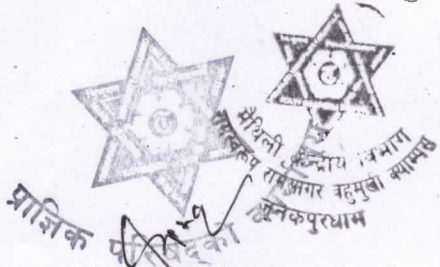 मैथिली केन्द्रीय विभाग
रामस्वरूप रामसागर बहुमुखी क्याम्पस
जनकपुरधाम
प्राज्ञिक परिषद्को